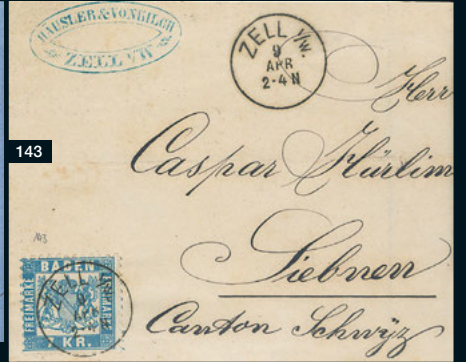 HÄUSLER & VONKILCH
ZELL i/W
ZELL i/W.
9
APR
2-4 N
143
Herr
Caspar Hürlim
Siebnen
Canton Schwyz
143
BADEN
FREIMARKE
KR.
ZELL